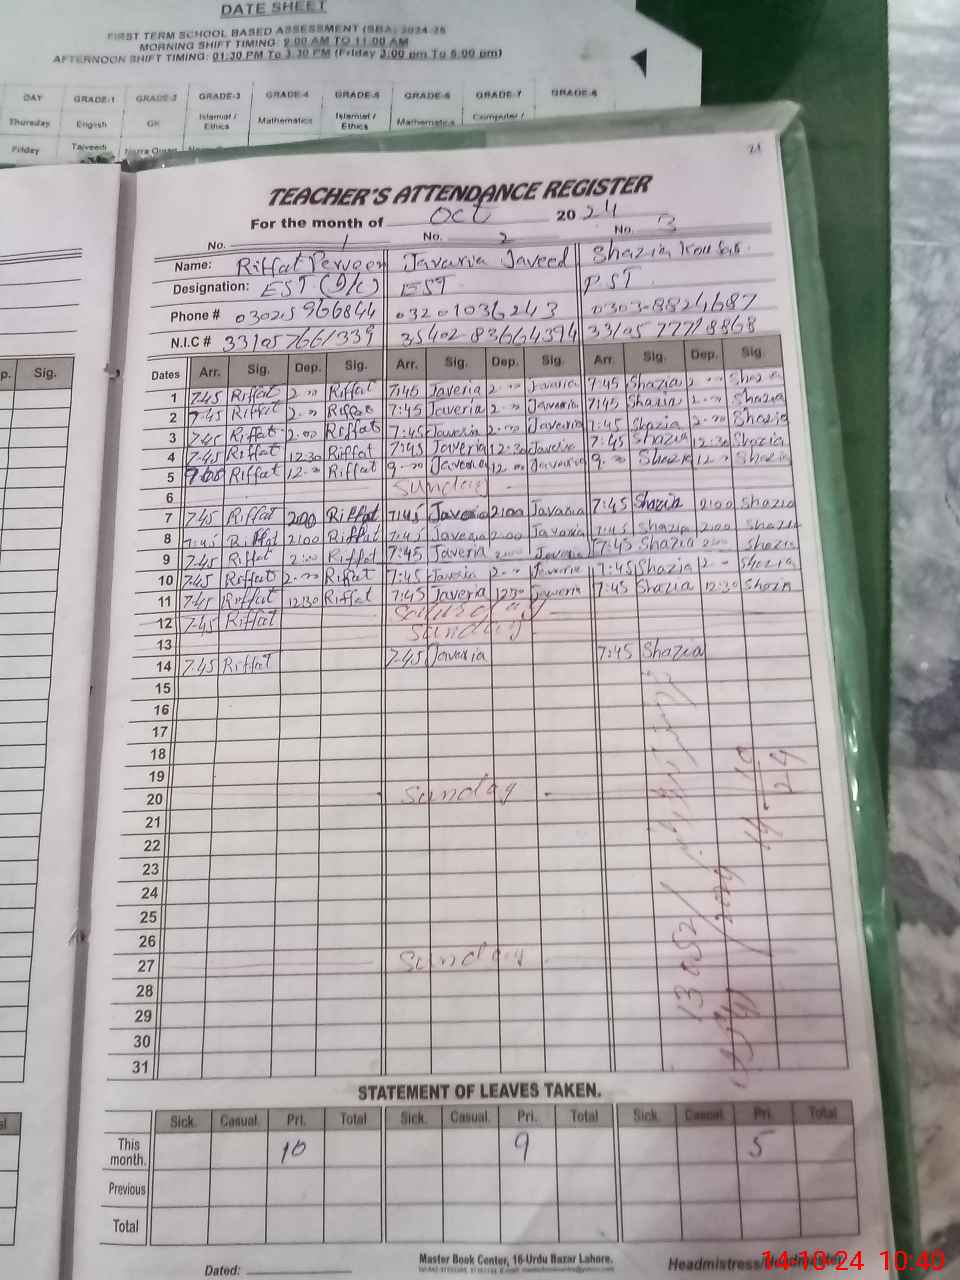 DATE SHEET
FIRST TERM SCHOOL BASED ASSESSMENT (SBA) 2024-25
MORNING SHIFT TIMING: 9:00 AM TO 11:00 AM
AFTERNOON SHIFT TIMING: 01:30 PM To 3:30 PM (Friday 3:00 pm To 5:00 pm)
DAY GRADE-1 GRADE-2 GRADE-3 GRADE-4 GRADE-5 GRADE-6 GRADE-7 GRADE-8
Thursday English GK Islamiat / Ethics Mathematics Islamiat / Ethics Mathematics Computer /
Friday
TEACHER'S ATTENDANCE REGISTER
For the month of Oct 2024
No. 1 No. 2 No. 3
Name: Riffat Perveen Javaria Javeed Shazia Kousar
Designation: EST (I/C) EST PST
Phone # 03025966844 03201036243 0303-8824687
N.I.C #
Dates Arr. Sig. Dep. Sig. Arr. Sig. Dep. Sig. Arr. Sig. Dep. Sig.
1 7:45 Riffat 2:00 Riffat 7:45 Javeria 2:00 Javeria 7:45 Shazia 2:00 Shazia
2 7:45 Riffat 2:00 Riffat 7:45 Javeria 2:00 Javeria 7:45 Shazia 2:00 Shazia
3 7:45 Riffat 2:00 Riffat 7:45 Javeria 2:00 Javeria 7:45 Shazia 2:00 Shazia
4 7:45 Riffat 12:30 Riffat 7:45 Javeria 12:30 Javeria 7:45 Shazia 12:30 Shazia
5 Riffat 12:00 Riffat 9:00 Javeria 12:00 Javeria 9:00 Shazia 12:00 Shazia
6 Sunday
7 7:45 Riffat 2:00 Riffat 7:45 Javeria 2:00 Javaria 7:45 Shazia 2:00 Shazia
8 7:45 Riffat 2:00 Riffat 7:45 Javeria 2:00 Javaria 7:45 Shazia 2:00 Shazia
9 7:45 Riffat 2:00 Riffat 7:45 Javeria 2:00 Javeria 7:45 Shazia 2:00 Shazia
10 7:45 Riffat 2:00 Riffat 7:45 Javeria 2:00 Javeria 7:45 Shazia 2:00 Shazia
11 7:45 Riffat 12:30 Riffat 7:45 Javeria 12:30 Javeria 7:45 Shazia 12:30 Shazia
12 7:45 Riffat Saturday
13 Sunday
14 7:45 Riffat 7:45 Javeria 7:45 Shazia
15
16
17
18
19
20 Sunday
21
22
23
24
25
26
27 Sunday
28
29
30
31
STATEMENT OF LEAVES TAKEN.
Sick. Casual. Pri. Total Sick. Casual. Pri. Total Sick. Casual. Pri. Total
This month. 10 9 5
Previous
Total
Dated:
Master Book Center, 16-Urdu Bazar Lahore.
Headmistress/Headmaster
14-10-24 10:40
p. Sig.